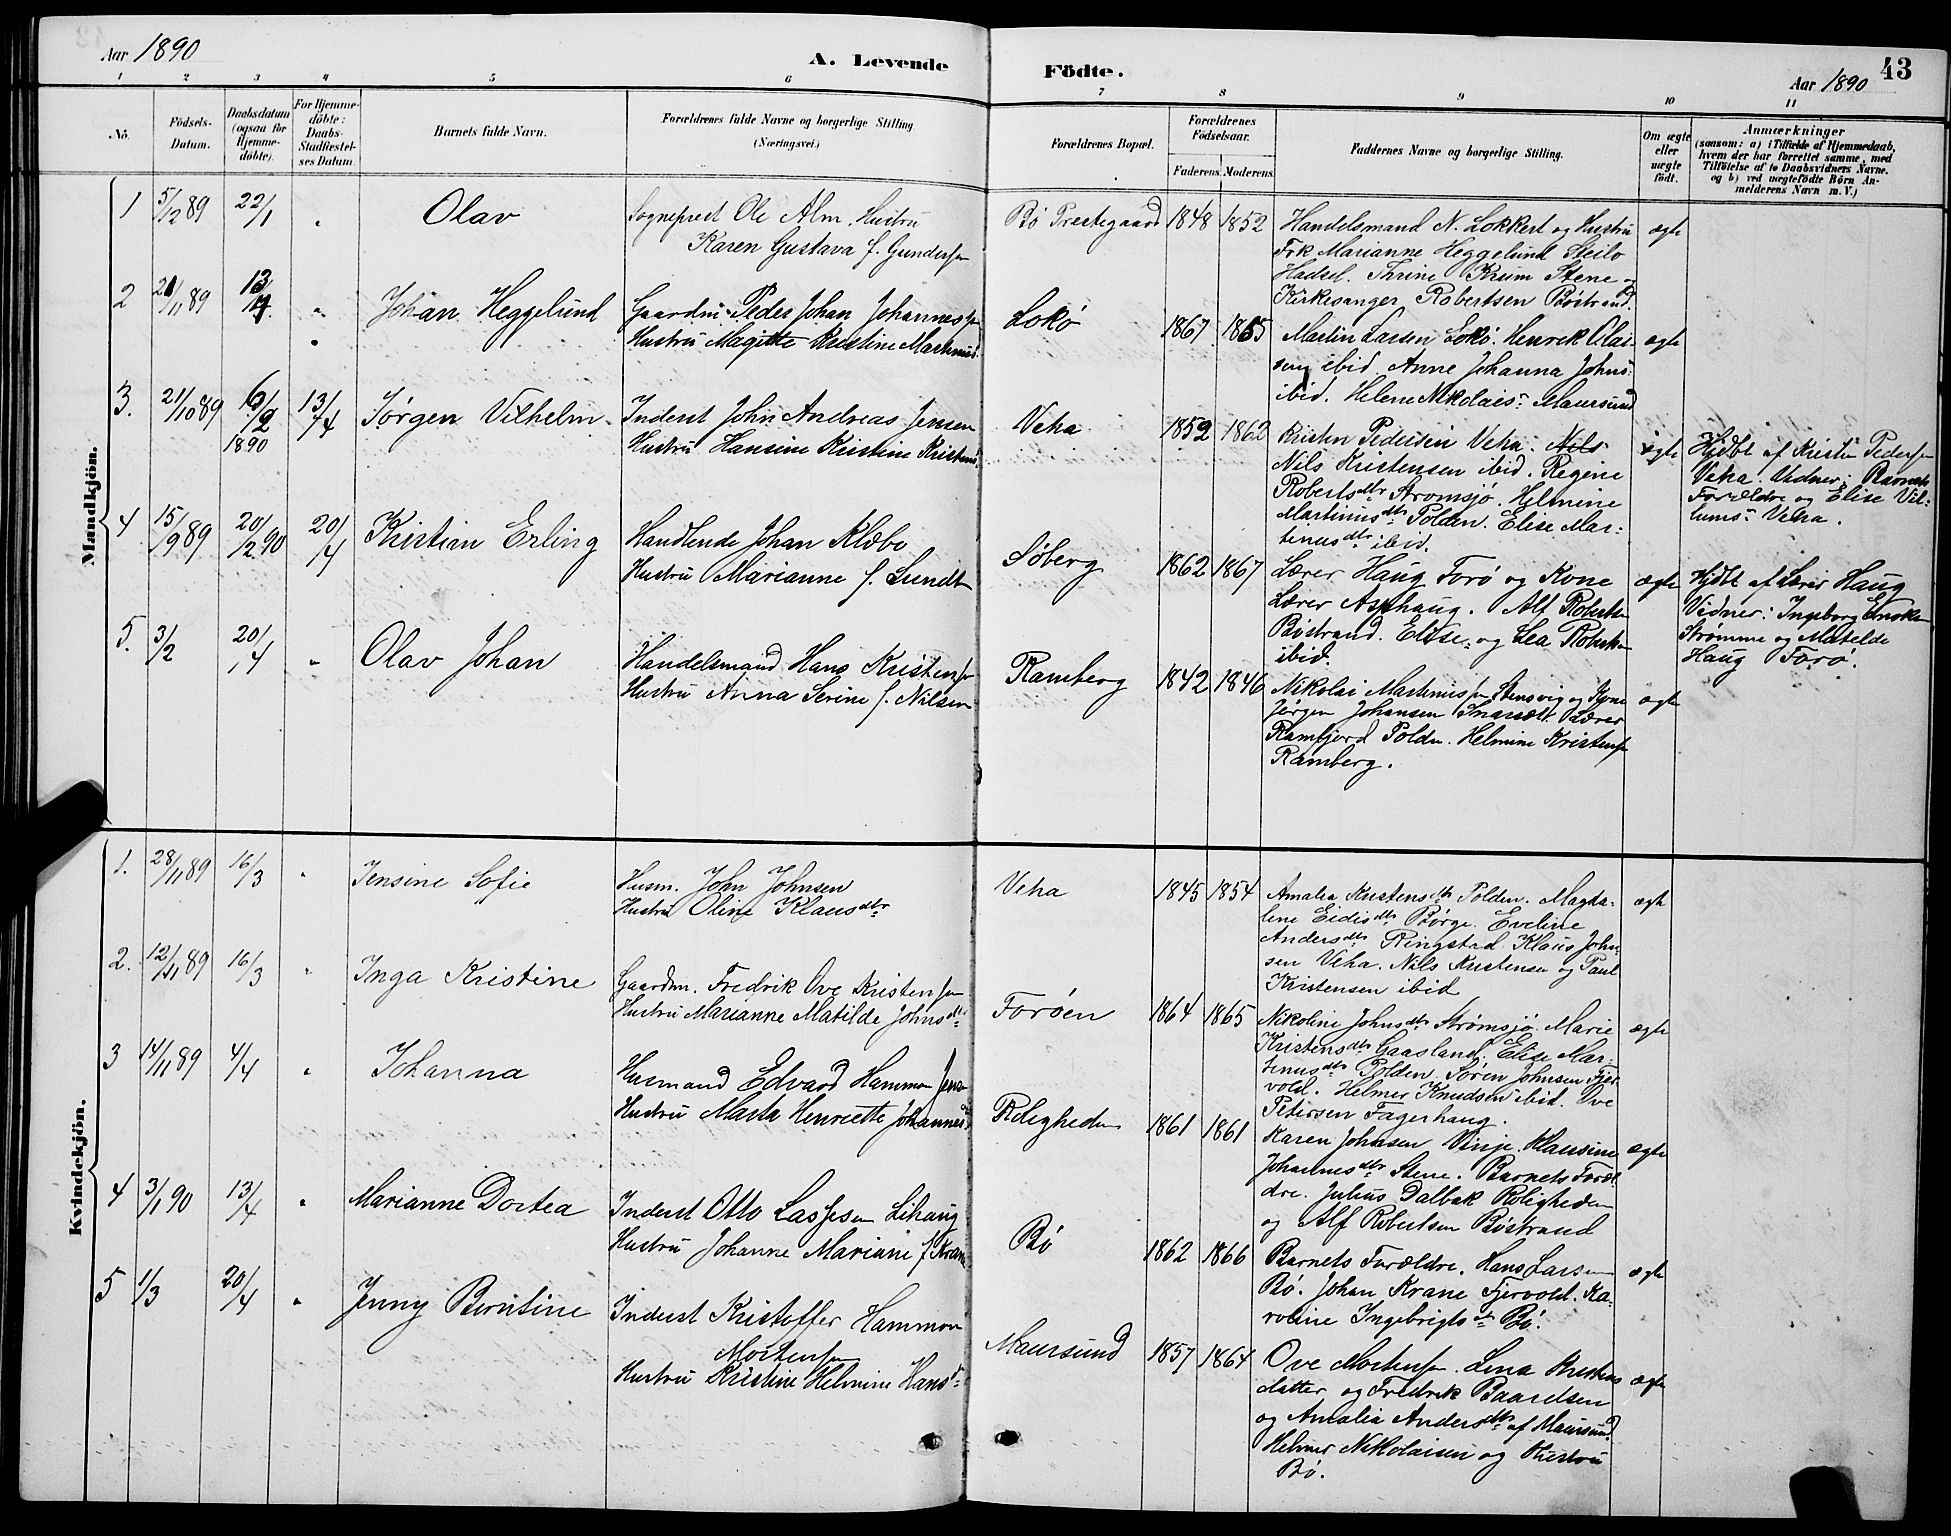 Aar 1890
A. Levende
Födte.
Aar 1890
43
1 2 3 4 5 6 7 8 9 10 11
Nô.
Födsels-
Datum.
Daabsdatum
(ogsaa for
Hjemme-
döbte).
For Hjemme-
döbte:
Daabs-
Stadfæstel-
ses Datum.
Barnets fulde Navn.
Forældrenes fulde Navne og borgerlige Stilling
(Næringsvei.)
Forældrenes Bopæl.
Forældrenes
Födselsaar.
Faderens. Moderens.
Faddernes Navne og borgerlige Stilling.
Om ægte
eller
uægte
födt.
Anmærkninger
(saasom: a) i Tilfælde af Hjemmedaab,
hvem der har forrettet samme, med
Tilföielse af to Daabsvidners Navne.
og b) ved uægtefödte Börn An-
melderens Navn m. V.)
Mandkjön.
1 5/12 89 22/1 " Olav
Sogneprest Ole Alm. Hustru
Karen Gustava f. Gundersen
Bö Prestegaard 1848 1852
Handelsmand N. Lokkert og Hustru
Frk Marianne Heggelund Steilo
Hadsel. Thrine Krum Stene og
Kirkesanger Robertsen Böstrand.
ægte
2 21/11 89 13/4 " Johan Heggelund
Gaardm. Peder Johan Johannesen
Hustru Magitte Kristine Martinusd.
Lokö 1867 1865
Martin Larsen Lokö. Henrik Olai-
sen ibid. Anne Johanna Johns-
ibid. Helene Nikolais- Maursund
ægte
3. 21/10 89 6/2 1890 13/4 Jörgen Vilhelm
Inderst John Andreas Jensen
Hustru Hansine Kristine Kristensd.
Veha 1852 1862
Kristen Pedersen Veha. Nils
Nils Kristensen ibid. Regine
Robertsdtr Strömsjö. Helmine
Martinusdtr Polden. Elise Mar-
tinusdtr ibid.
ægte
Hjdbt af Kristen Pedersen
Veha. Vidner: Barnets
Forældre og Elise Vil-
lums- Veha.
4. 15/9 89 20/2 90 20/4 Kristian Erling
Handlende Johan Klæbo
Hustru Marianne f. Lundt
Söberg 1862 1867
Lærer Haug Forö og Kone
Lærer Asphaug. Alf Robertsen
Böstrand. Elise- og Lea Robertsen
ibid.
ægte
Hjdbt af Lærer Haug
Vidner: Ingeborg
Strömme og Matilde
Haug Forö.
5. 3/2 20/4 " Olav Johan
Handelsmand Hans Kristensen
Hustru Anna Serine f. Nilsen
Ramberg 1842 1846
Nikolai Martinussen Stensvig og Kone
Jörgen Johansen Snarset. Lærer
Ramfjord Polden. Helmine Kristensen
Ramberg.
ægte
Kvindekjön.
1. 28/11 89 16/3 " Jensine Sofie
Husm. John Johnsen
Hustru Oline Klausdtr
Veha 1845 1854
Amalia Kristensdtr Polden. Magda-
lene Eidisdtr Börge. Eveline
Andersdtr Ringstad. Klaus John-
sen Veha. Nils Kristensen og Paul
Kristensen ibid
ægte
2. 12/11 89 16/3 " Inga Kristine
Gaardm. Fredrik Ove Kristensen
Hustru Marianne Matilde Johnsdtr
Foröen 1864 1865
Nikoline Johnsdtr Strömsjö. Marie
Kristensdtr Gaasland. Elise Mar-
tinusdtr Polden. Sören Johnsen Fjer-
vold. Helmer Knudsen ibid. Ove
Petersen Fagerhaug.
ægte
3 14/11 89 4/4 " Johanna
Husmand Edvard Hammon Jensen
Hustru Marta Henriette Johannesd
Roligheden 1861 1861
Karen Johnsen Vinje. Klausine
Johannesdtr Stene. Barnets Foræl-
dre. Julius Dalbak Roligheden
og Alf Robertsen Böstrand
ægte
4 3/1 90 13/4 " Marianne Dortea
Inderst Otto Lassesen Lihaug
Hustru Johanne Mariane f. Krane
Bö 1862 1866
Barnets Forældre. Hans Larsen
Bö. Johan Krane Fjervold. Ka-
roline Ingebrigtsdtr Bö.
ægte
5 1/3 20/4 " Jenny Berntine
Inderst Kristoffer Hammon
Mortensen
Hustru Kristine Helmine Hansd-
Maursund 1857 1864
Ove Mortensen. Lena Kristens
datter og Fredrik Baardsen
og Amalia Andersdtr af Maursund.
Helmer Nikolaisen og Hustru
Bö.
ægte